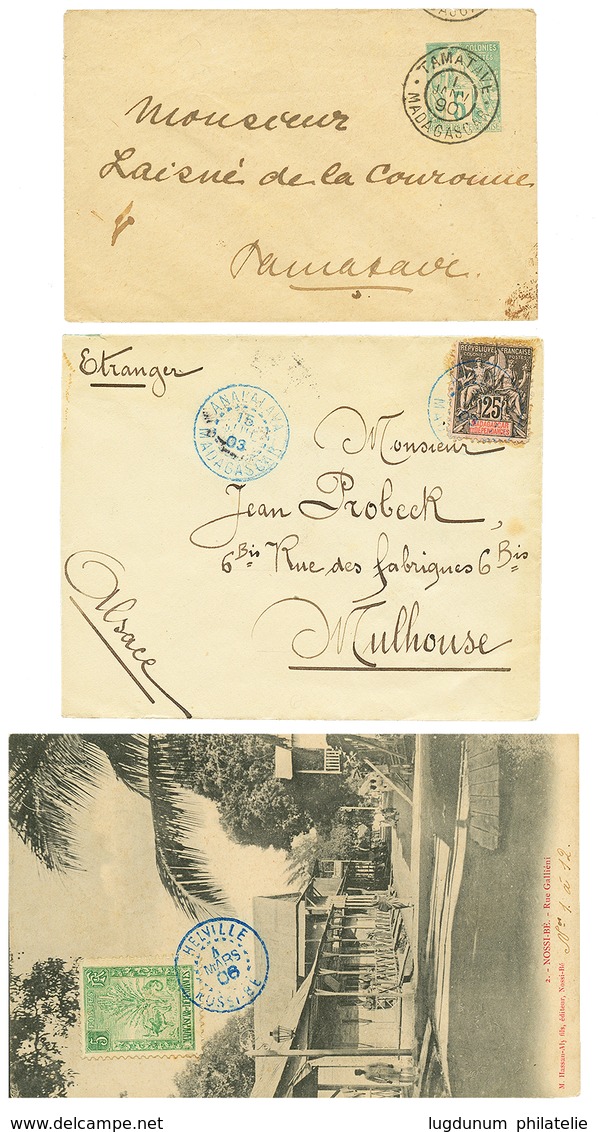 COLONIES
TAMATAVE
1
JANV
90
MADAGASCAR
Monsieur
Laisné de la Couronne
Tamatave.
Etranger
ANALALAVA
15
03
MADAGASCAR
REPUBLIQUE FRANÇAISE
COLONIES POSTES
25
Monsieur
Jean Probeck,
6 Bis Rue des fabriques 6 Bis
Mulhouse
Alsace
HELVILLE
4
MARS
06
NOSSI-BE
5
2. - NOSSI-BÉ. - Rue Galliéni
Nos 1 à 12.
M. Hassan-Aly fils, éditeur, Nossi-Bé
delcampe.net
lugdunum philatelie